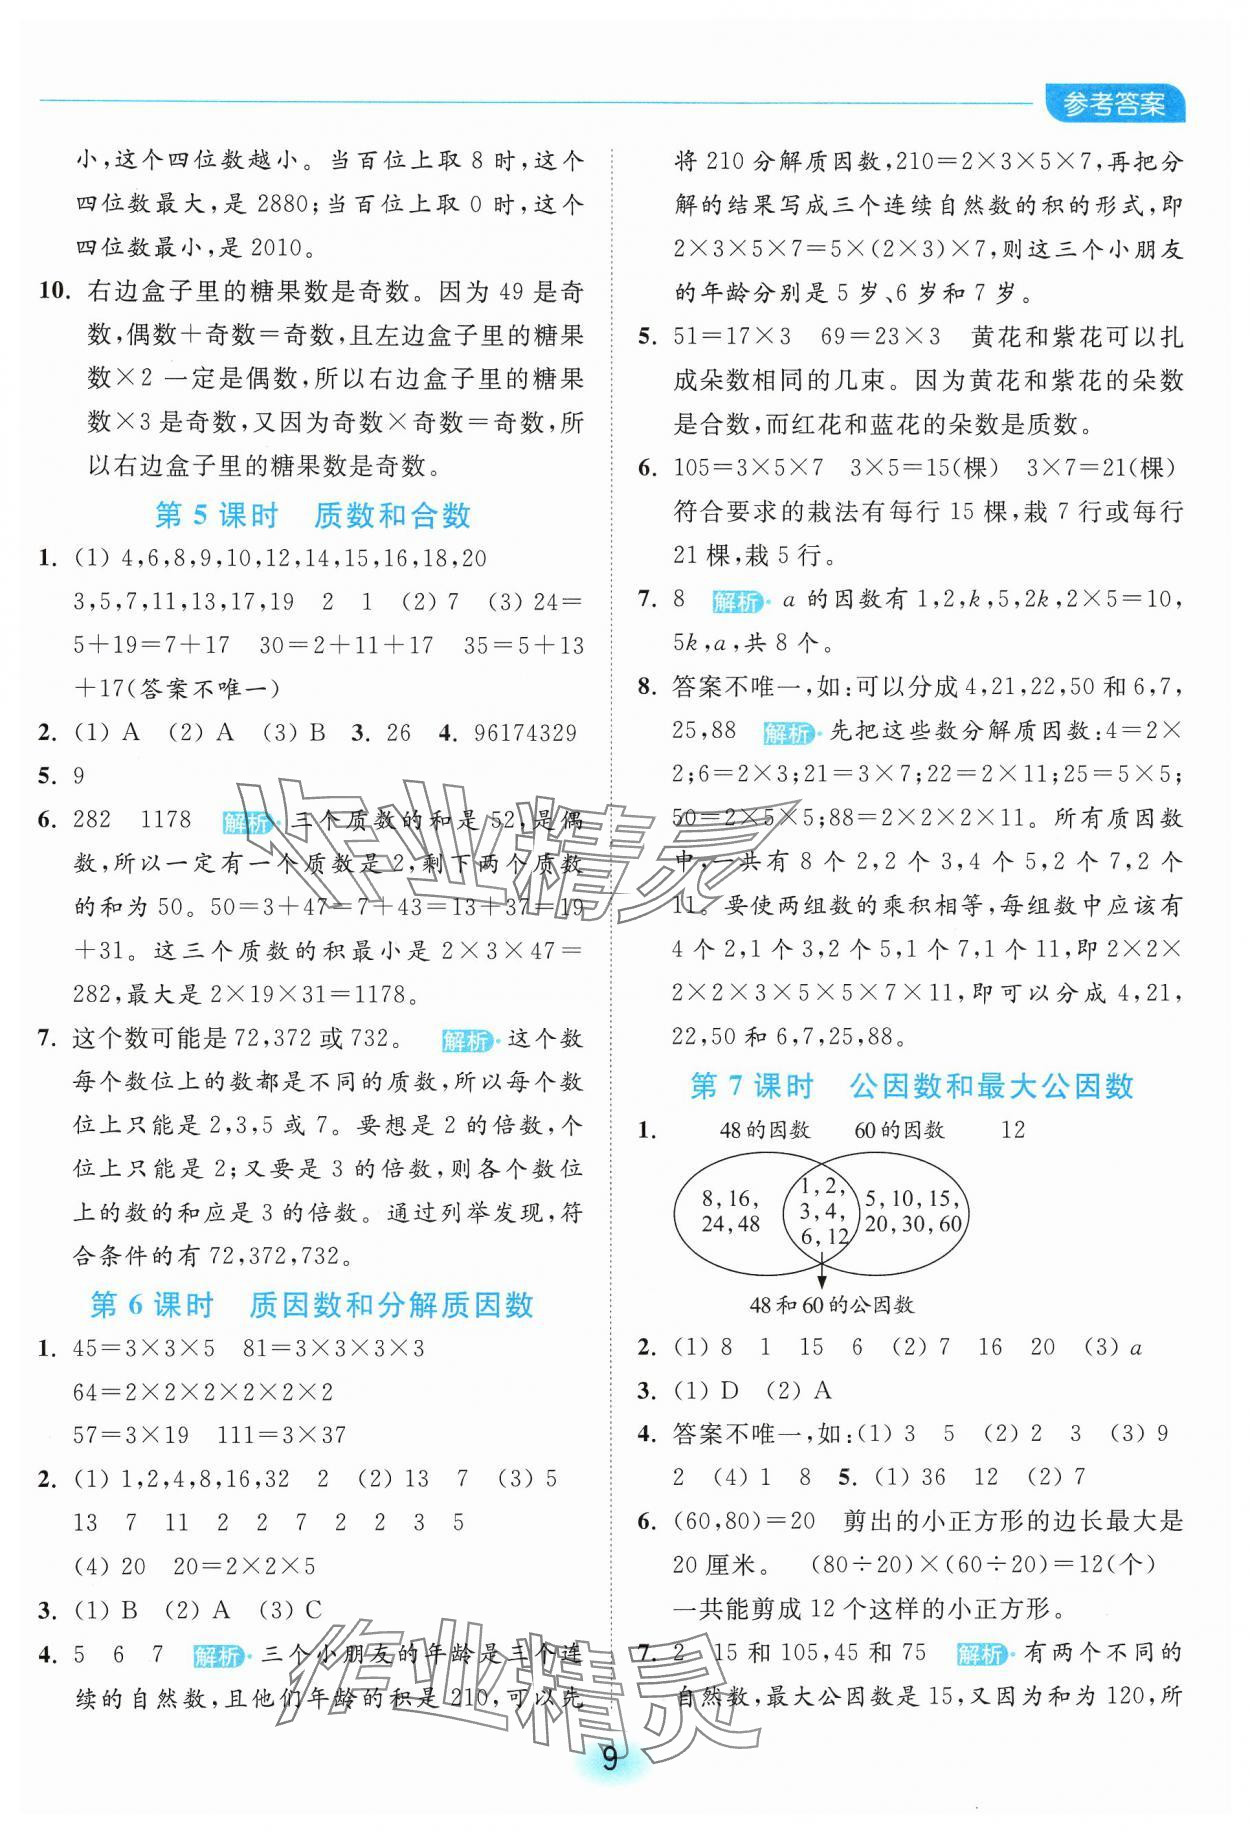 参考答案
小,这个四位数越小。当百位上取 8 时,这个
四位数最大,是 2880;当百位上取 0 时,这个
四位数最小,是 2010。
10. 右边盒子里的糖果数是奇数。因为 49 是奇
数,偶数+奇数=奇数,且左边盒子里的糖果
数×2 一定是偶数,所以右边盒子里的糖果
数×3 是奇数,又因为奇数×奇数=奇数,所
以右边盒子里的糖果数是奇数。
第 5 课时 质数和合数
1. (1) 4,6,8,9,10,12,14,15,16,18,20
3,5,7,11,13,17,19 2 1 (2) 7 (3) 24=
5+19=7+17 30=2+11+17 35=5+13
+17(答案不唯一)
2. (1) A (2) A (3) B 3. 26 4. 96174329
5. 9
6. 282 1178 解析 三个质数的和是 52,是偶
数,所以一定有一个质数是 2,剩下两个质数
的和为 50。50=3+47=7+43=13+37=19
+31。这三个质数的积最小是 2×3×47=
282,最大是 2×19×31=1178。
7. 这个数可能是 72,372 或 732。 解析 这个数
每个数位上的数都是不同的质数,所以每个数
位上只能是 2,3,5 或 7。要想是 2 的倍数,个
位上只能是 2;又要是 3 的倍数,则各个数位
上的数的和应是 3 的倍数。通过列举发现,符
合条件的有 72,372,732。
第 6 课时 质因数和分解质因数
1. 45=3×3×5 81=3×3×3×3
64=2×2×2×2×2×2
57=3×19 111=3×37
2. (1) 1,2,4,8,16,32 2 (2) 13 7 (3) 5
13 7 11 2 2 7 2 2 3 5
(4) 20 20=2×2×5
3. (1) B (2) A (3) C
4. 5 6 7 解析 三个小朋友的年龄是三个连
续的自然数,且他们年龄的积是 210,可以先
将 210 分解质因数,210=2×3×5×7,再把分
解的结果写成三个连续自然数的积的形式,即
2×3×5×7=5×(2×3)×7,则这三个小朋友
的年龄分别是 5 岁、6 岁和 7 岁。
5. 51=17×3 69=23×3 黄花和紫花可以扎
成朵数相同的几束。因为黄花和紫花的朵数
是合数,而红花和蓝花的朵数是质数。
6. 105=3×5×7 3×5=15(棵) 3×7=21(棵)
符合要求的栽法有每行 15 棵,栽 7 行或每行
21 棵,栽 5 行。
7. 8 解析 a 的因数有 1,2,k,5,2k,2×5=10,
5k,a,共 8 个。
8. 答案不唯一,如:可以分成 4,21,22,50 和 6,7,
25,88 解析 先把这些数分解质因数:4=2×
2;6=2×3;21=3×7;22=2×11;25=5×5;
50=2×5×5;88=2×2×2×11。所有质因数
中,一共有 8 个 2,2 个 3,4 个 5,2 个 7,2 个
11。要使两组数的乘积相等,每组数中应该有
4 个 2,1 个 3,2 个 5,1 个 7,1 个 11,即 2×2×
2×2×3×5×5×7×11,即可以分成 4,21,
22,50 和 6,7,25,88。
第 7 课时 公因数和最大公因数
1. 48的因数 60的因数 12
8,16, 1,2, 5,10,15,
24,48 3,4, 20,30,60
6,12
48和60的公因数
2. (1) 8 1 15 6 (2) 7 16 20 (3) a
3. (1) D (2) A
4. 答案不唯一,如:(1) 3 5 (2) 2 3 (3) 9
2 (4) 1 8 5. (1) 36 12 (2) 7
6. (60,80)=20 剪出的小正方形的边长最大是
20 厘米。 (80÷20)×(60÷20)=12(个)
一共能剪成 12 个这样的小正方形。
7. 2 15 和 105,45 和 75 解析 有两个不同的
自然数,最大公因数是 15,又因为和为 120,所
作业精灵
作业精灵
9